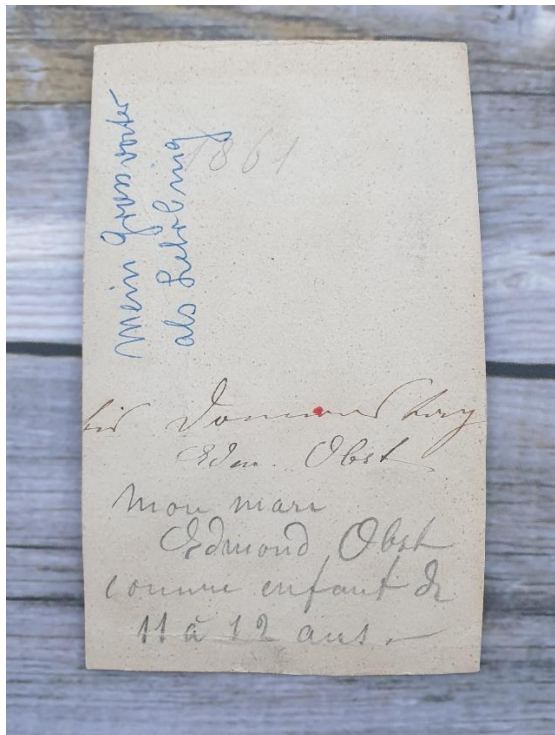 mein Grossvater
als Lehrling
1861
bis Donnerstag
Edm. Obst
Mon mari
Edmond Obst
comme enfant de
11 à 12 ans.